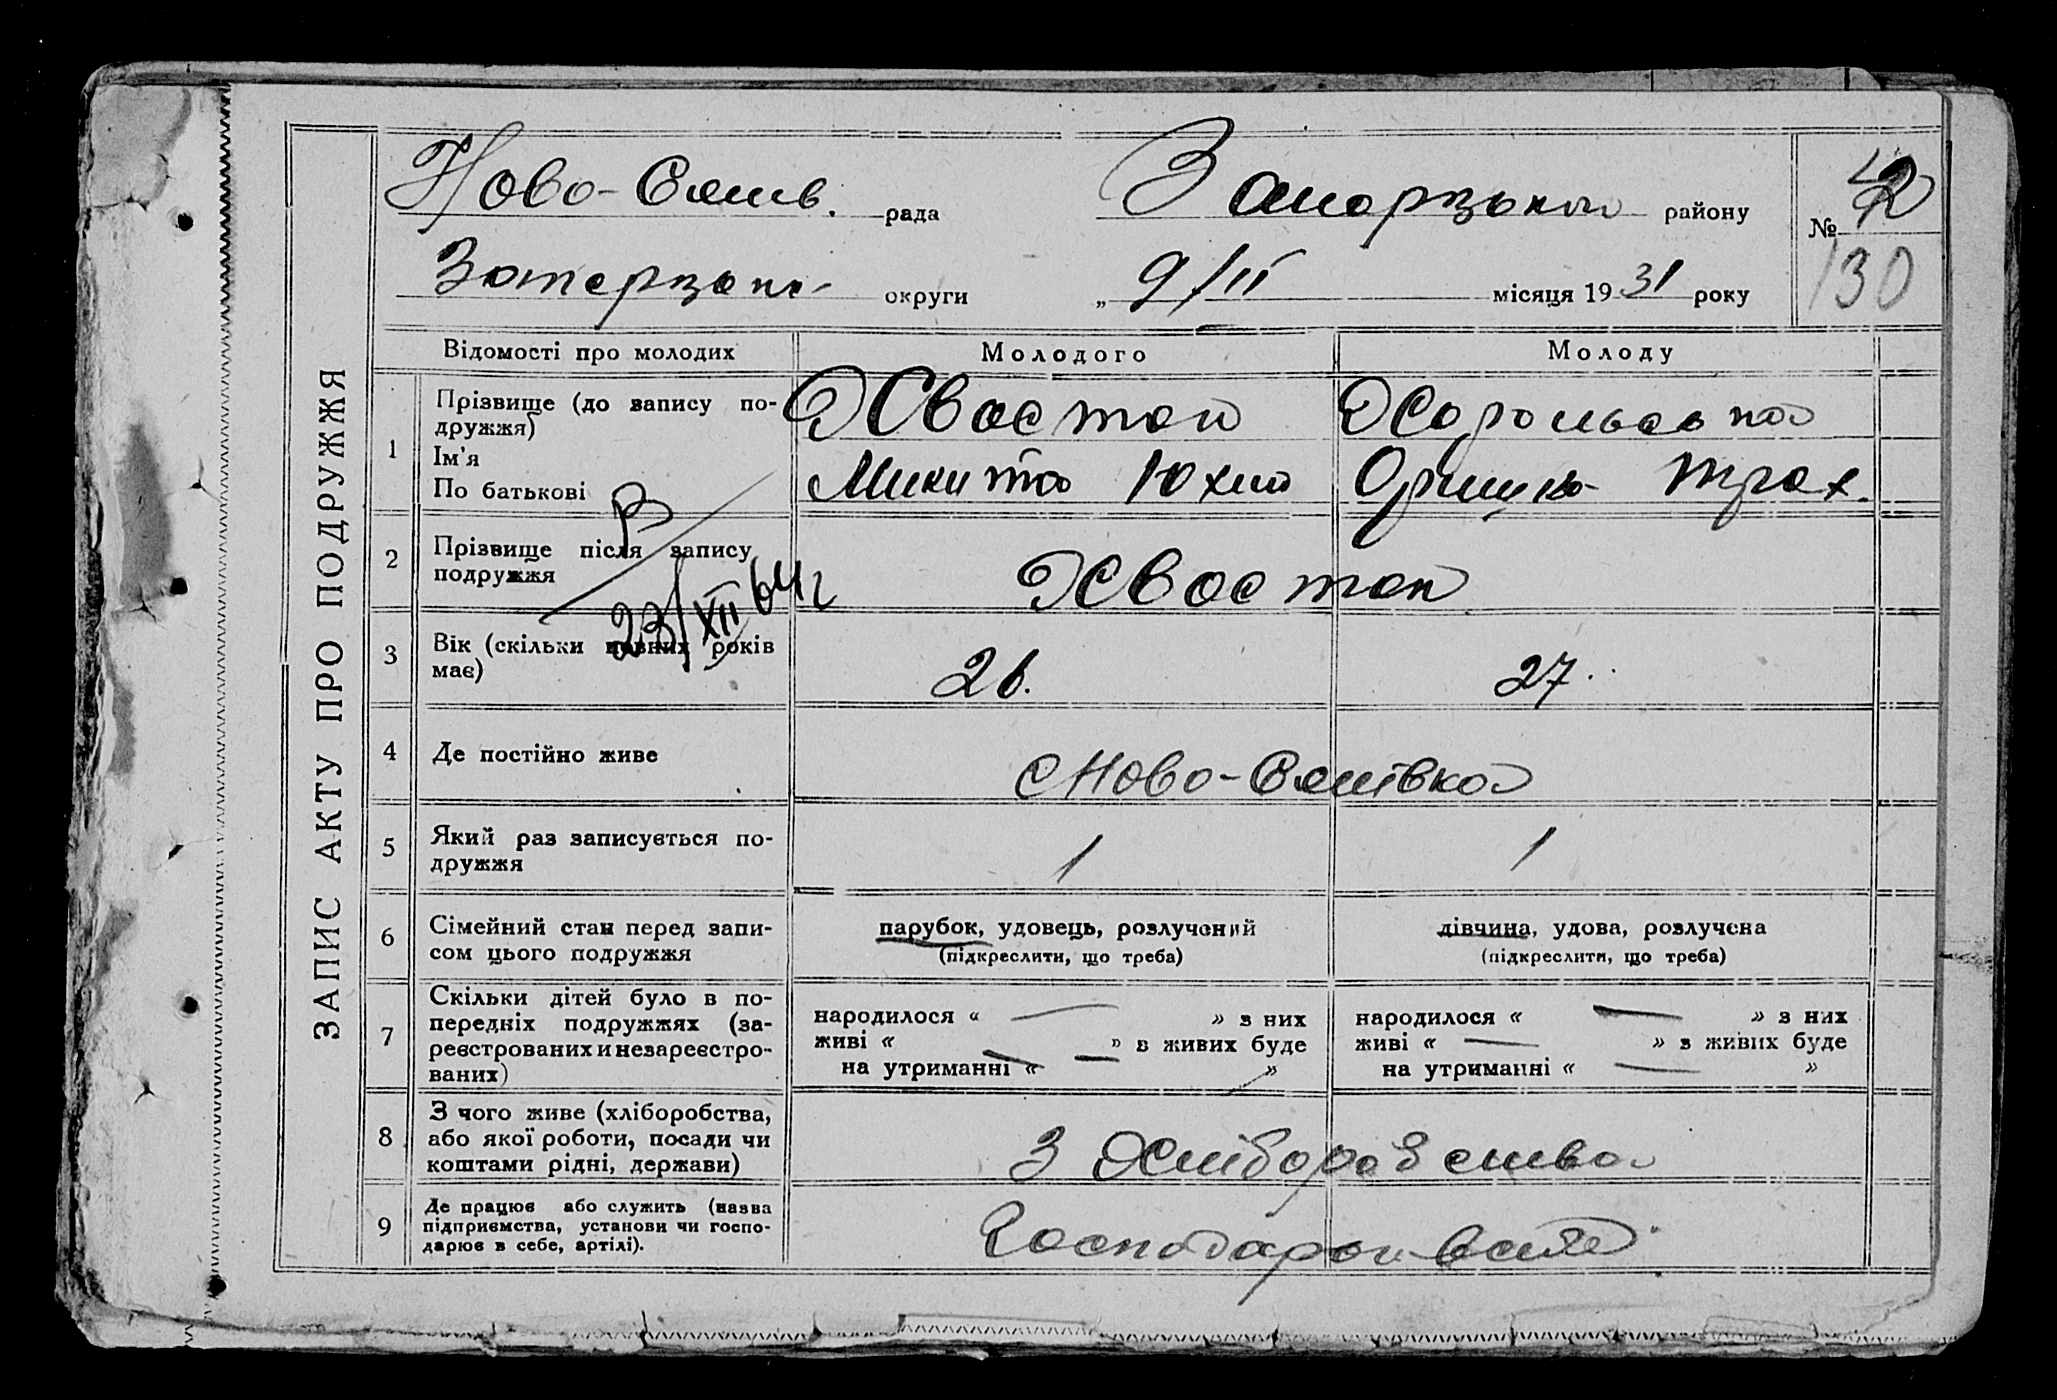 ЗАПИС АКТУ ПРО ПОДРУЖЖЯ
Ново-Селів. рада
району
№ 42
130
округи „ 9/II місяця 1931 року
Відомості про молодих Молодого Молоду
1 Прізвище (до запису по-
дружжя)
Ім'я
По батькові
Хвостон
Микита Юхим
Трох.
2 Прізвище після запису
подружжя
Хвостон
23/XII 64 г
3 Вік (скільки повних років
має)
26. 27.
4 Де постійно живе
с Ново-Селівка
5 Який раз записується по-
дружжя
1 1
6 Сімейний стан перед запи-
сом цього подружжя
парубок, удовець, розлучений
(підкреслити, що треба)
дівчина, удова, розлучена
(підкреслити, що треба)
7 Скільки дітей було в по-
передніх подружжях (за-
реєстрованих и незареєстро-
ваних)
народилося « — » з них
живі « — » в живих буде
на утриманні « — »
народилося « — » з них
живі « — » з живих буде
на утриманні « — »
8 З чого живе (хліборобства,
або якої роботи, посади чи
коштами рідні, держави)
З Хліборобства
9 Де працює або служить (назва
підприємства, установи чи госпо-
дарює в себе, артілі).